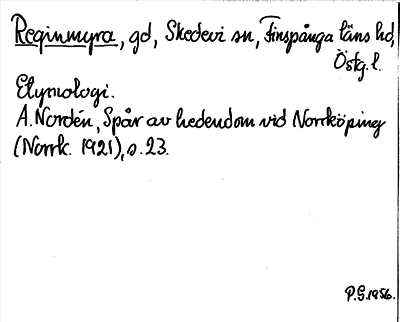 Reginmyra, gd, Skedevi sn, Finspånga läns hd,
Östg. l.
Etymologi.
A. Nordén, Spår av hedendom vid Norrköping
(Norrk. 1921), s. 23.
P.G. 1956.